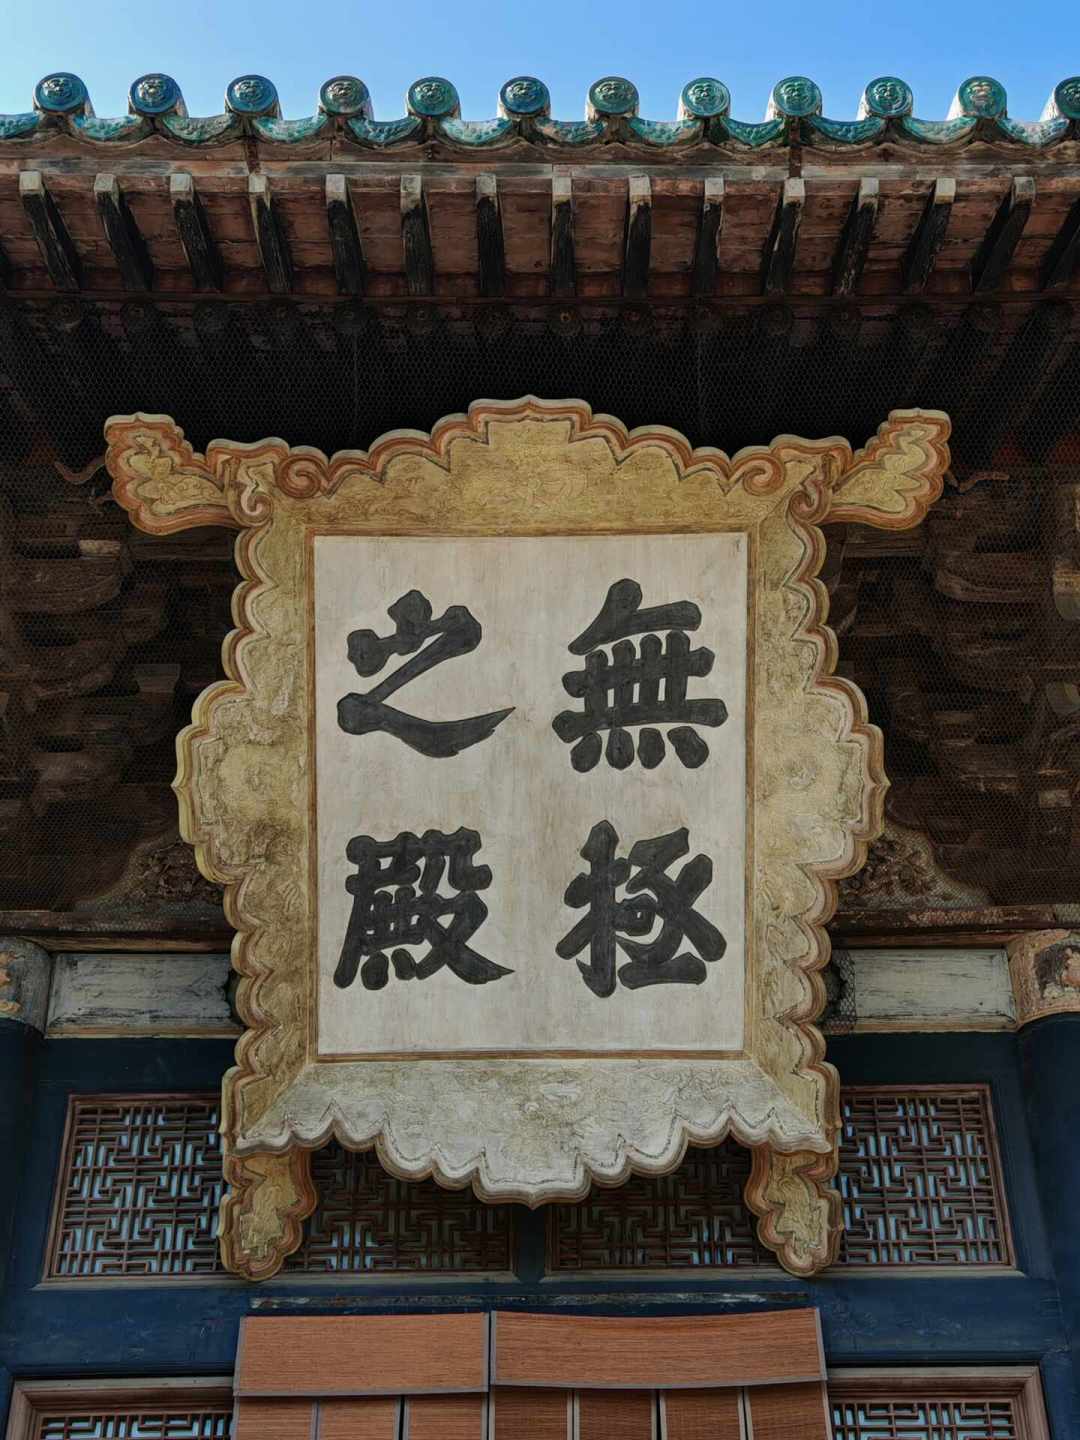 無極
之殿